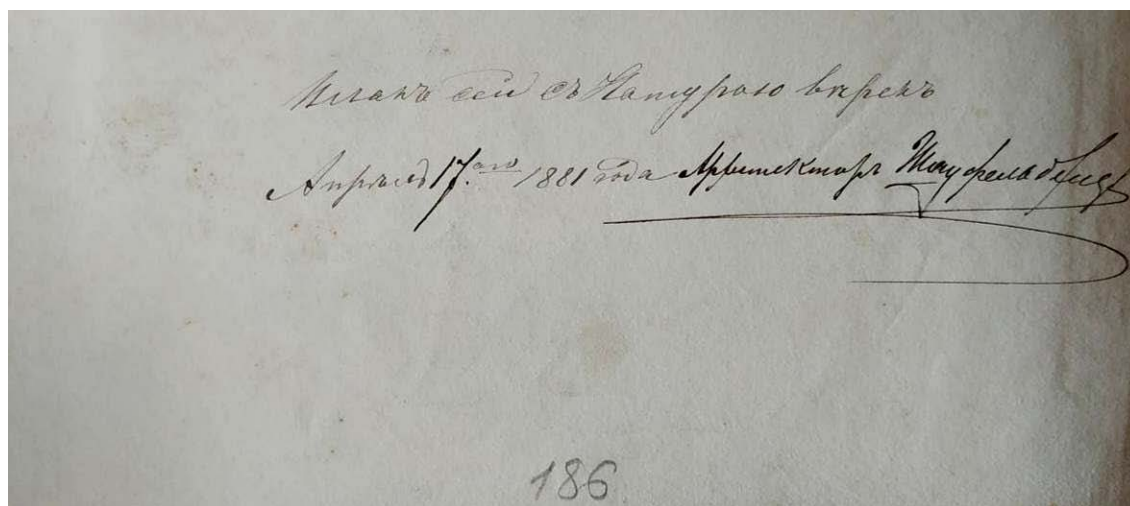 Планъ сей съ Натурою вѣренъ
Апрѣля 17.аго 1881 года Архитекторъ
186